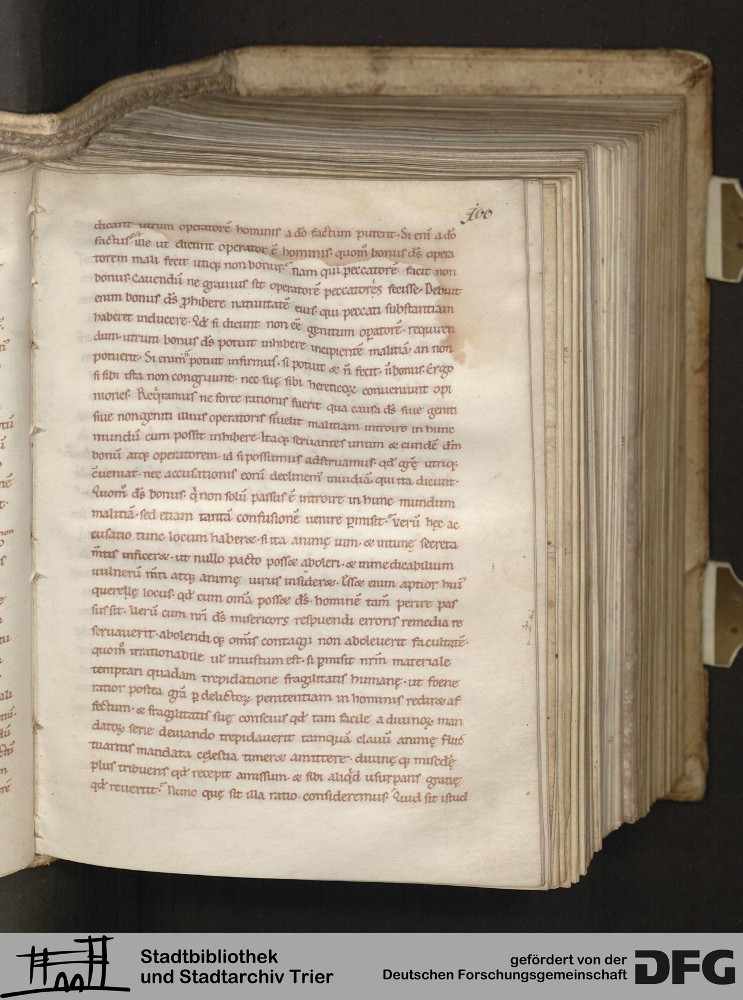 400
dicant utrum operatorē hominis a dō factum putent. Si eni᷎ a dō
factus ille ut dicunt operator ē hominis. quom̄ bonus ds̄ opera
torem mali fecit utiq; non bonus. nam qui peccatorē facit non
bonus. Cauendū ne grauius sit operatorē peccatoris fecisse. Debuit
enim bonus ds̄ ꝓhibere natiuitatē eius. qui peccati substantiam
haberet inducere. Qđ si dicunt non eē genitum oꝑatorē. requiren
dum. utrum bonus ds̄ potuit inhibere incipientē malitiā. an non
potuerit. Si enim n̄ potuit infirmus. si potuit & n̄ fecit. n̄ bonus. Ergo
si sibi ista non congruunt. nec suę sibi hereticoꝝ conueniunt opi
niones. Reqͥramus ne forte rationis fuerit qua causa ds̄ siue geniti
siue non geniti illius operatoris siuerit malitiam introire in hunc
mundū cum possit inhibere. Itaq; seruantes unum & eundē dm̄
bonū atq; operatorem. id si possumus adstruamus. qđ grę utriq;
c̄ueniat. nec accusationis eorū declinem᷎ inuidiā. qui ita dicunt.
Quom̄ ds̄ bonus. qͥ non solū passus ē introire in hunc mundum
malitiā. sed etiam tantū confusionē uenire ꝑmisit. Verū hęc ac
cusatio tunc locum haberet. si ita animę uim. & intimę secreta
m̄tis inficeret. ut nullo pacto posset aboleri. & inmedicabilium
uulnerū m̄ti atq; animę uirus insideret. Esset enim aptior hui᷎
querellę locus. qđ cum om̄a posset ds̄. hominē tam̄ perire pas
sus sit. Verū cum nr̄i ds̄ misericors respuendi erroris remedia re
seruauerit. abolendi q; om̄is contagii non aboleuerit facultatē.
quom̄ irrationabile ut̄ iniustum est. si ꝑmisit nr̄m materiale
temptari quadam trepidatione fragilitatis humanę. ut foene
ratior postea grā ꝑ delictoꝝ penitentiam in hominis rediret af
fectum. & fragilitatis suę conscius qđ tam facile a diuinoꝝ man
datoꝝ serie deuiando trepidauerit tamquā clauū animę fluc
tuantis mandata cęlestia timeret amittere. diuinę q; miscđę
plus tribuens qđ recepit amissum. & sibi aliqͥd usurpans gratię
qđ reuertit. Nunc quę sit illa ratio. consideremus. Quid sit istud
Stadtbibliothek
und Stadtarchiv Trier
gefördert von der
Deutschen Forschungsgemeinschaft
DFG